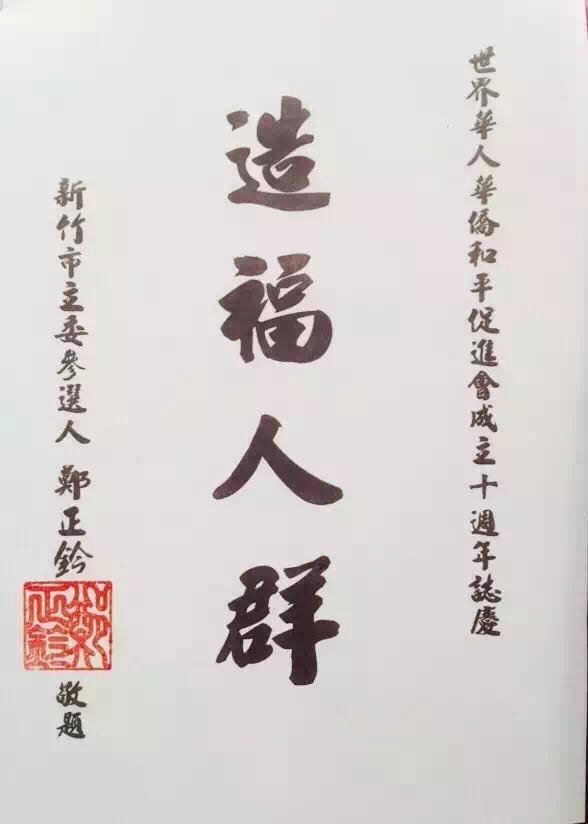 世界華人華僑和平促進會成立十週年誌慶
造福人群
新竹市立委參選人 鄭正鈐
鄭正鈐
敬題